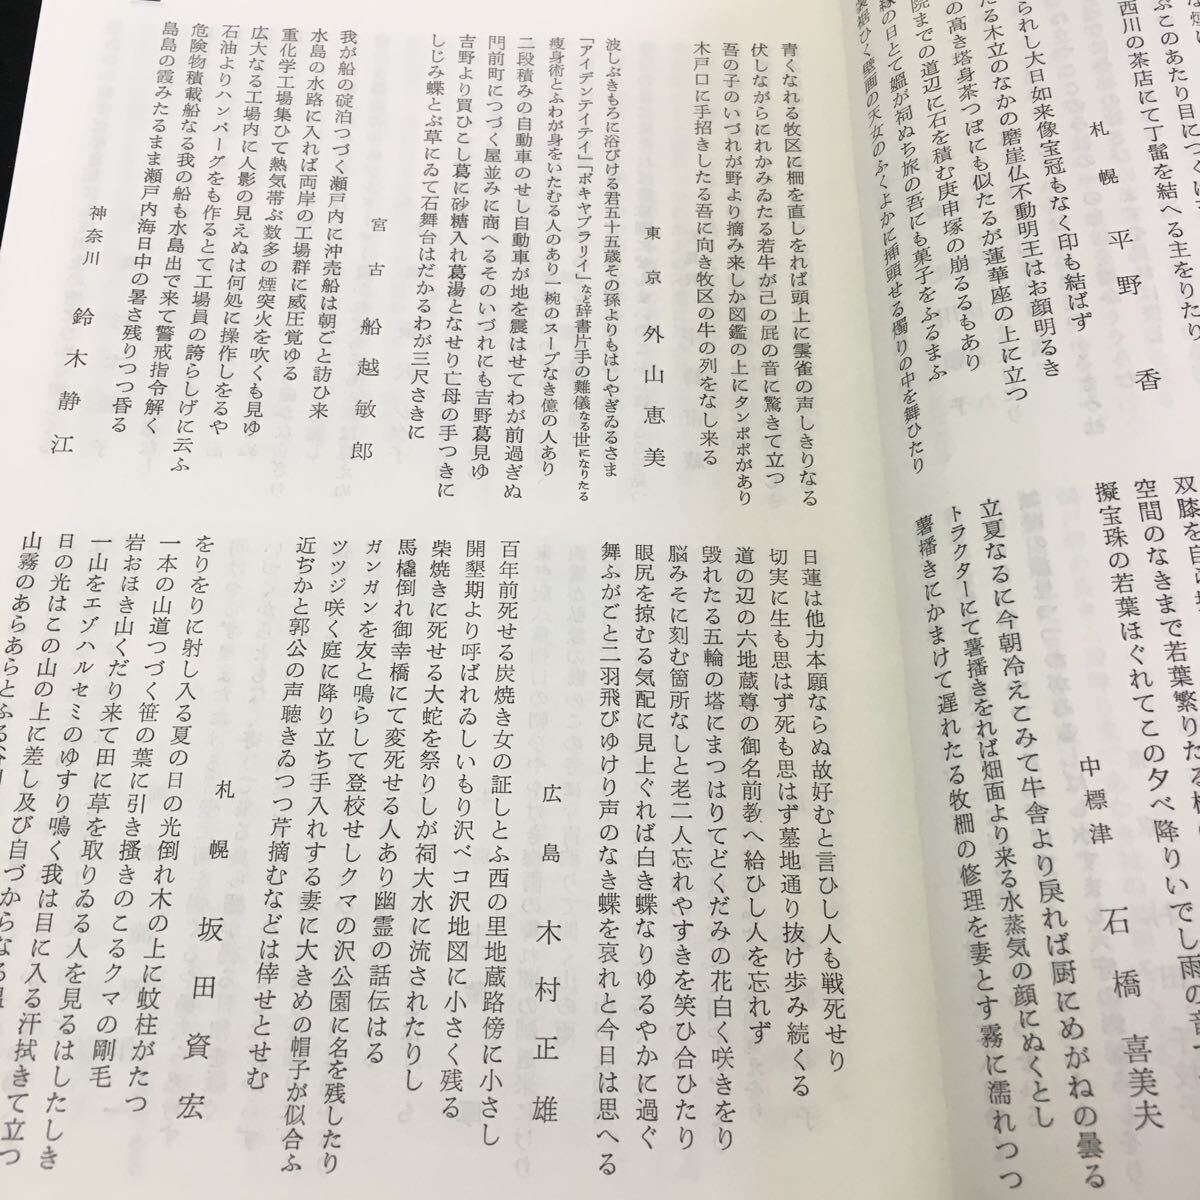 西川の茶店にて丁髷を結へる主をりたり
札幌 平野香
られし大日如来像宝冠もなく印も結ばず
たる木立のなかの磨崖仏不動明王はお顔明るき
の高き塔身茶つぼにも似たるが蓮華座の上に立つ
院までの道辺に石を積む庚申塚の崩るるもあり
縁の日とて媼が祠ぬち旅の吾にも菓子をふるまふ
裳裾ひく壁画の天女のふくよかに挿頭せる濁りの中を舞ひたり
空間のなきまで若葉繁りたる
擬宝珠の若葉ほぐれてこの夕べ降りいでし雨の音
中標津 石橋喜美夫
立夏なるに今朝冷えこみて牛舎より戻れば厨にめがねの曇る
トラクターにて薯播きをれば畑面より来る水蒸気の顔にぬくとし
薯播きにかまけて遅れたる牧柵の修理を妻とす霧に濡れつつ
青くなれる牧区に柵を直しをれば頭上に雲雀の声しきりなる
伏しながらにれかみゐたる若牛が己の屁の音に驚きて立つ
吾の子のいづれが野より摘み来しか図鑑の上にタンポポがあり
木戸口に手招きしたる吾に向き牧区の牛の列をなし来る
東京 外山恵美
波しぶきもろに浴びける君五十五歳その孫よりもはしやぎゐるさま
「アイデンテイテイ」「ボキヤブラリイ」など辞書片手の難儀なる世になりたる
痩身術とふわが身をいたむる人のあり一椀のスープなき億の人あり
二段積みの自動車のせし自動車が地を震はせてわが前過ぎぬ
門前町につづく屋並みに商へるそのいづれにも吉野葛見ゆ
吉野より買ひこし葛に砂糖入れ葛湯となせり亡母の手つきに
しじみ蝶とぶ草にゐて石舞台はだかるわが三尺さきに
宮古 船越敏郎
我が船の碇泊つづく瀬戸内に沖売船は朝ごと訪ひ来
水島の水路に入れば両岸の工場群に威圧覚ゆる
重化学工場集ひて熱気帯ぶ数多の煙突火を吹くも見ゆ
広大なる工場内に人影の見えぬは何処に操作しをるや
石油よりハンバーグをも作るとて工場員の誇らしげに云ふ
危険物積載船なる我の船も水島出で来て警戒指令解く
島島の霞みたるまま瀬戸内海日中の暑さ残りつつ昏る
神奈川 鈴木静江
日蓮は他力本願ならぬ故好むと言ひし人も戦死せり
切実に生も思はず死も思はず墓地通り抜け歩み続くる
道の辺の六地蔵尊の御名前教へ給ひし人を忘れず
毀れたる五輪の塔にまつはりてどくだみの花白く咲きをり
脳みそに刻む箇所なしと老二人忘れやすきを笑ひ合ひたり
眼尻を掠むる気配に見上ぐれば白き蝶なりゆるやかに過ぐ
舞ふがごと二羽飛びゆけり声のなき蝶を哀れと今日は思へる
広島 木村正雄
百年前死せる炭焼き女の証しとふ西の里地蔵路傍に小さし
開墾期より呼ばれゐしいもり沢ベコ沢地図に小さく残る
柴焼きに死せる大蛇を祭りしが祠大水に流されたりし
馬橇倒れ御幸橋にて変死せる人あり幽霊の話伝はる
ガンガンを友と鳴らして登校せしクマの沢公園に名を残したり
ツツジ咲く庭に降り立ち手入れする妻に大きめの帽子が似合ふ
近ぢかと郭公の声聴きゐつつ芹摘むなどは倖せとせむ
札幌 坂田資宏
をりをりに射し入る夏の日の光倒れ木の上に蚊柱がたつ
一本の山道つづく笹の葉に引き掻きのこるクマの剛毛
岩おほき山くだり来て田に草を取りゐる人を見るはしたしき
一山をエゾハルゼミのゆすり鳴く我は目に入る汗拭きて立つ
日の光はこの山の上に差し及び自づからなる
山霧のあらあらとふる